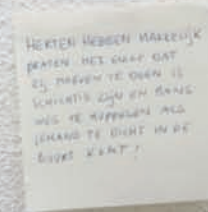 HERTEN HEBBEN MAKKELIJK
PRATEN. HET ENIGE DAT
ZIJ HOEVEN TE DOEN IS
SCHICHTIG ZIJN EN BANG
WEG TE HUPPELEN ALS
IEMAND TE DICHT IN DE
BUURT KOMT!